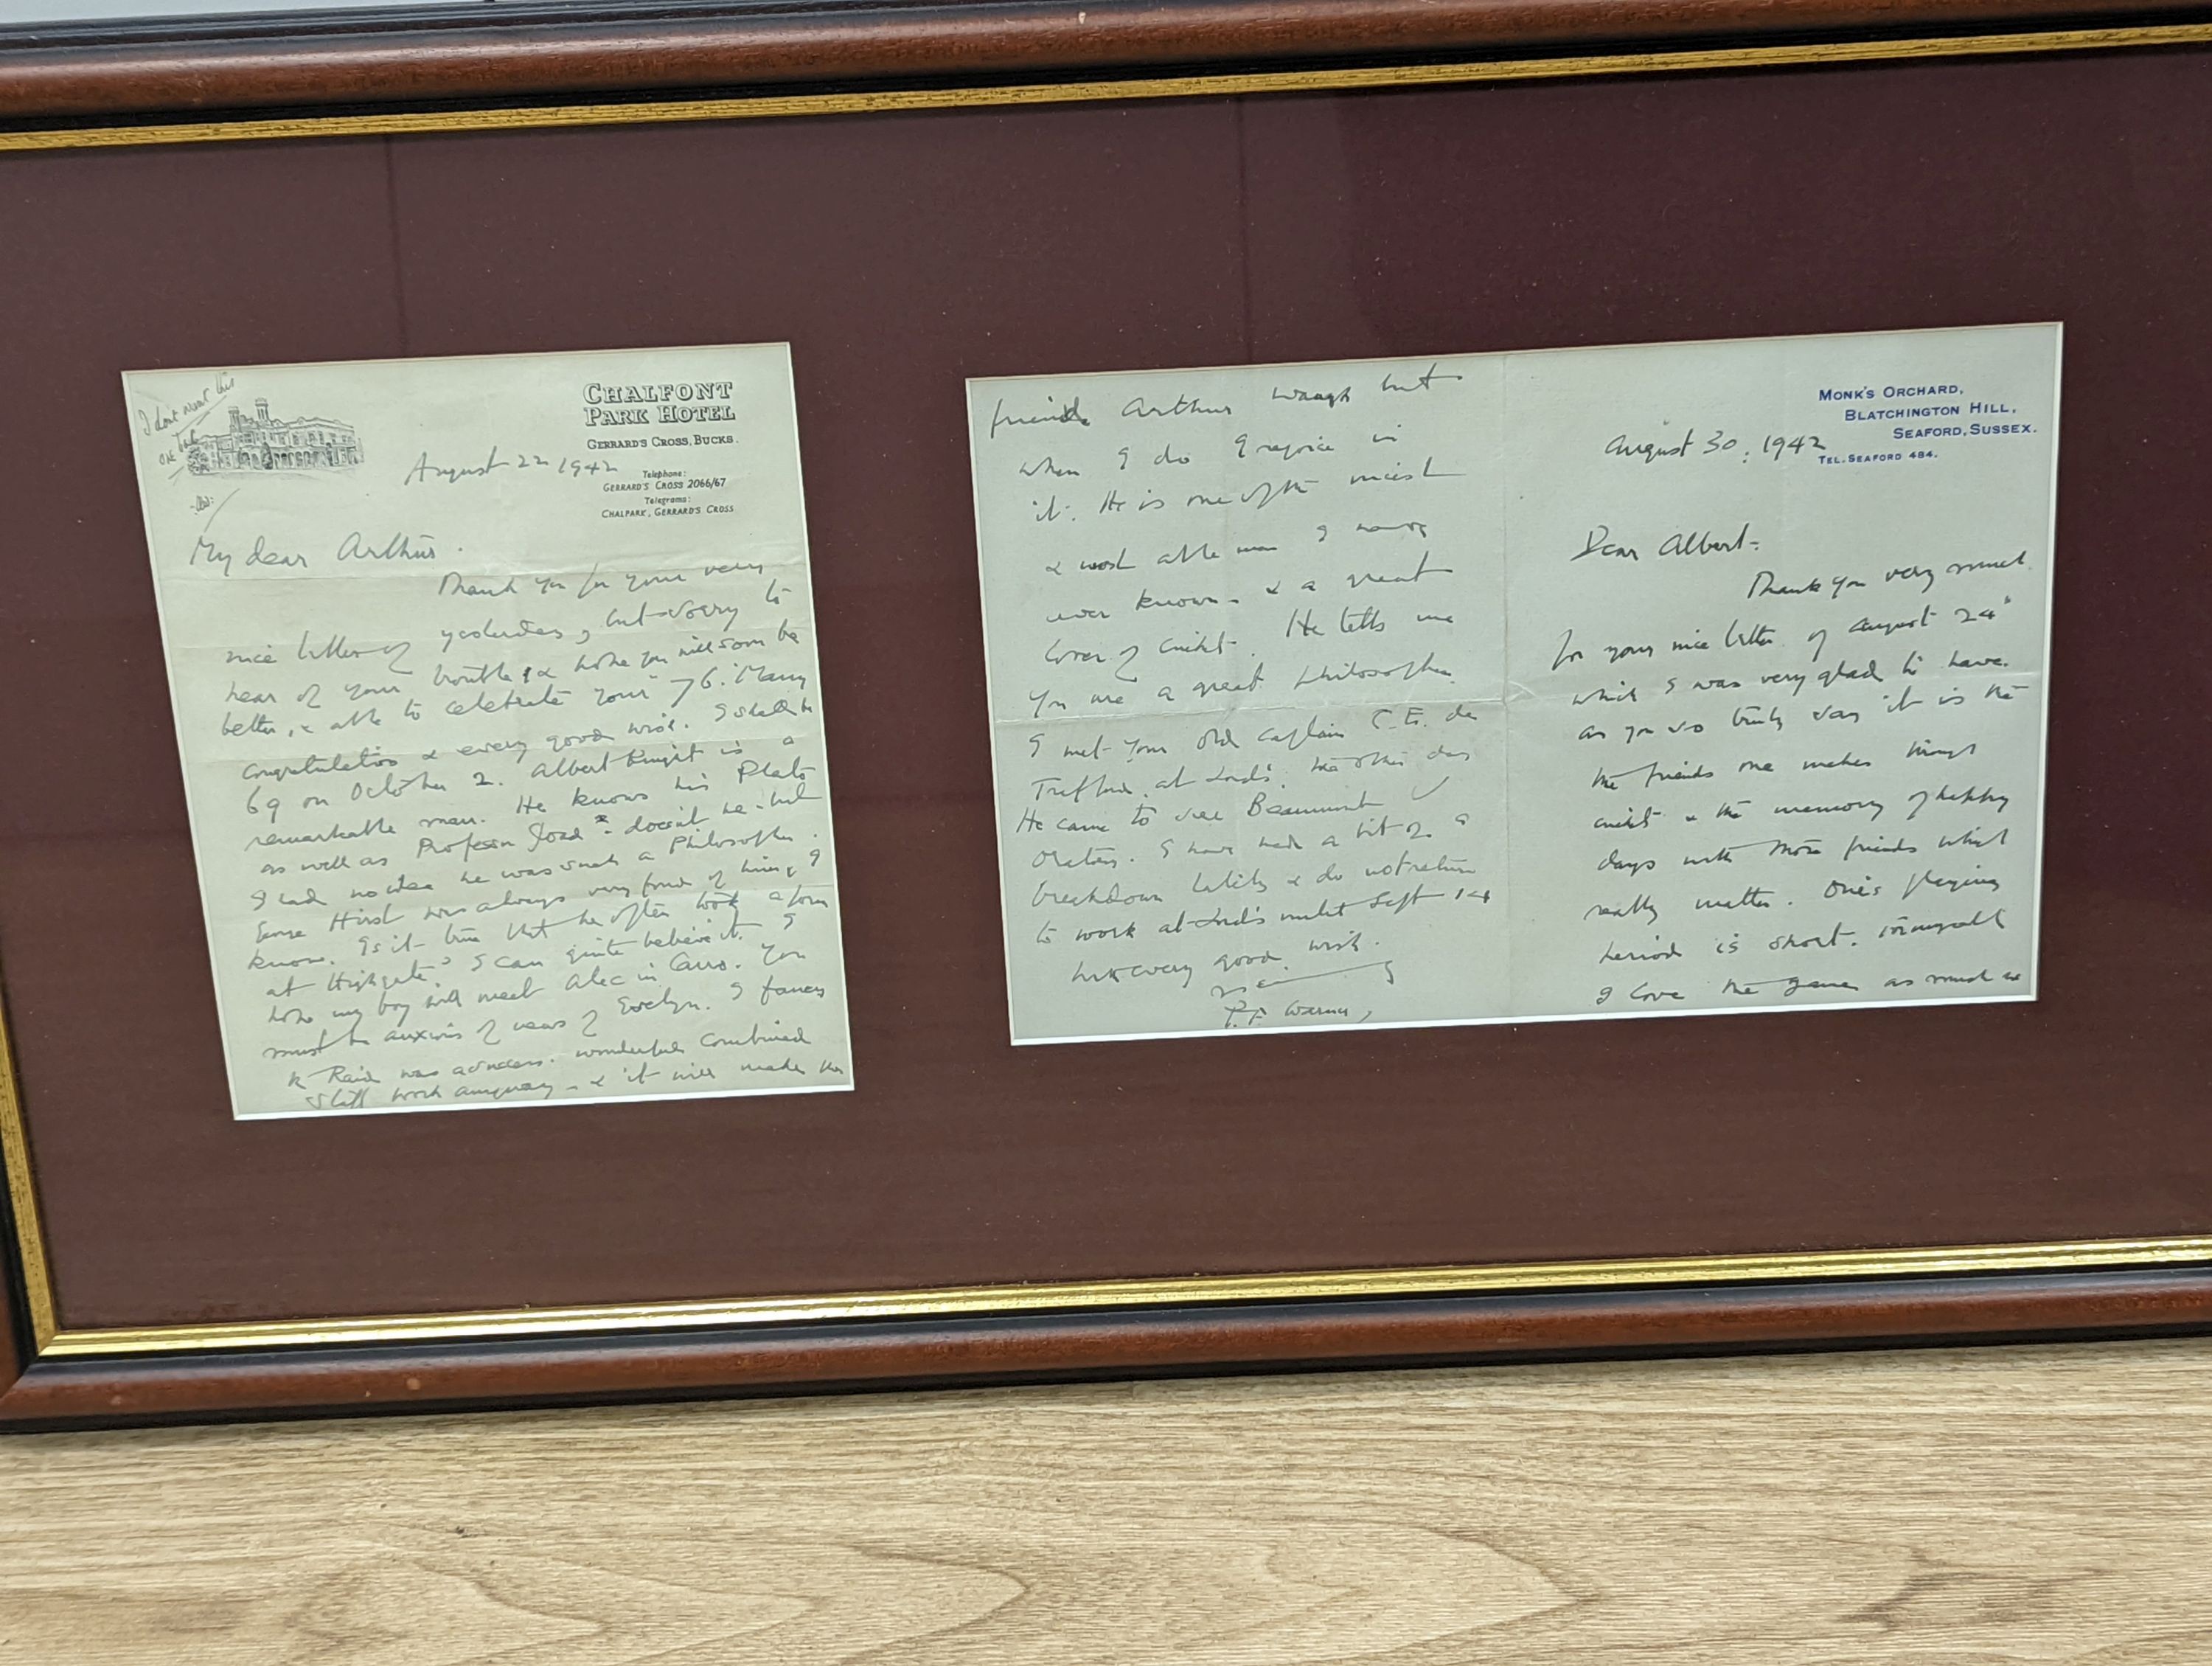 I don't want this
CHALFONT
PARK HOTEL
GERRARD'S CROSS, BUCKS.
Telephone:
GERRARD'S CROSS 2066/67
Telegrams:
CHALPARK, GERRARD'S CROSS
August 22 1942
My dear Arthur.
Thank you for your very
nice letter of yesterday, but sorry to
hear of your trouble, & hope you will soon be
better, & able to celebrate your 76. Many
congratulations & every good wish. I shall be
69 on October 2. Albert Knight is a
remarkable man. He knows his Plato
as well as Professor Joad - doesn't he - but
I had no idea he was such a Philosopher.
George Hirst was always very fond of him, I
know. Is it true that he often took a form
at Highgate? I can quite believe it. I
hope my boy will meet Alec in Cairo. You
must be anxious of news of Evelyn. I fancy
Raid was a success. wonderful combined
Staff work anyway - & it will make the
friend Arthur Waugh but
when I do I rejoice in
it. He is one of the nicest
& most able men I have
ever known - & a great
lover of cricket. He tells me
you are a great philosopher.
I met your old captain C.E. de
Trafford, at Lord's, the other day
He came to see Beaumont
Oratory. I have had a bit of a
breakdown lately & do not return
to work at Lord's until Sept 14
with every good wish.
P.F. Warner,
MONK'S ORCHARD,
BLATCHINGTON HILL,
SEAFORD, SUSSEX.
TEL. SEAFORD 484.
August 30, 1942
Dear Albert-
Thank you very much
for your nice letter of August 24"
which I was very glad to have.
as you so truly say it is the
the friends one makes through
cricket & the memory of happy
days with those friends which
really matter. One's playing
period is short. For myself
I love the game as much as